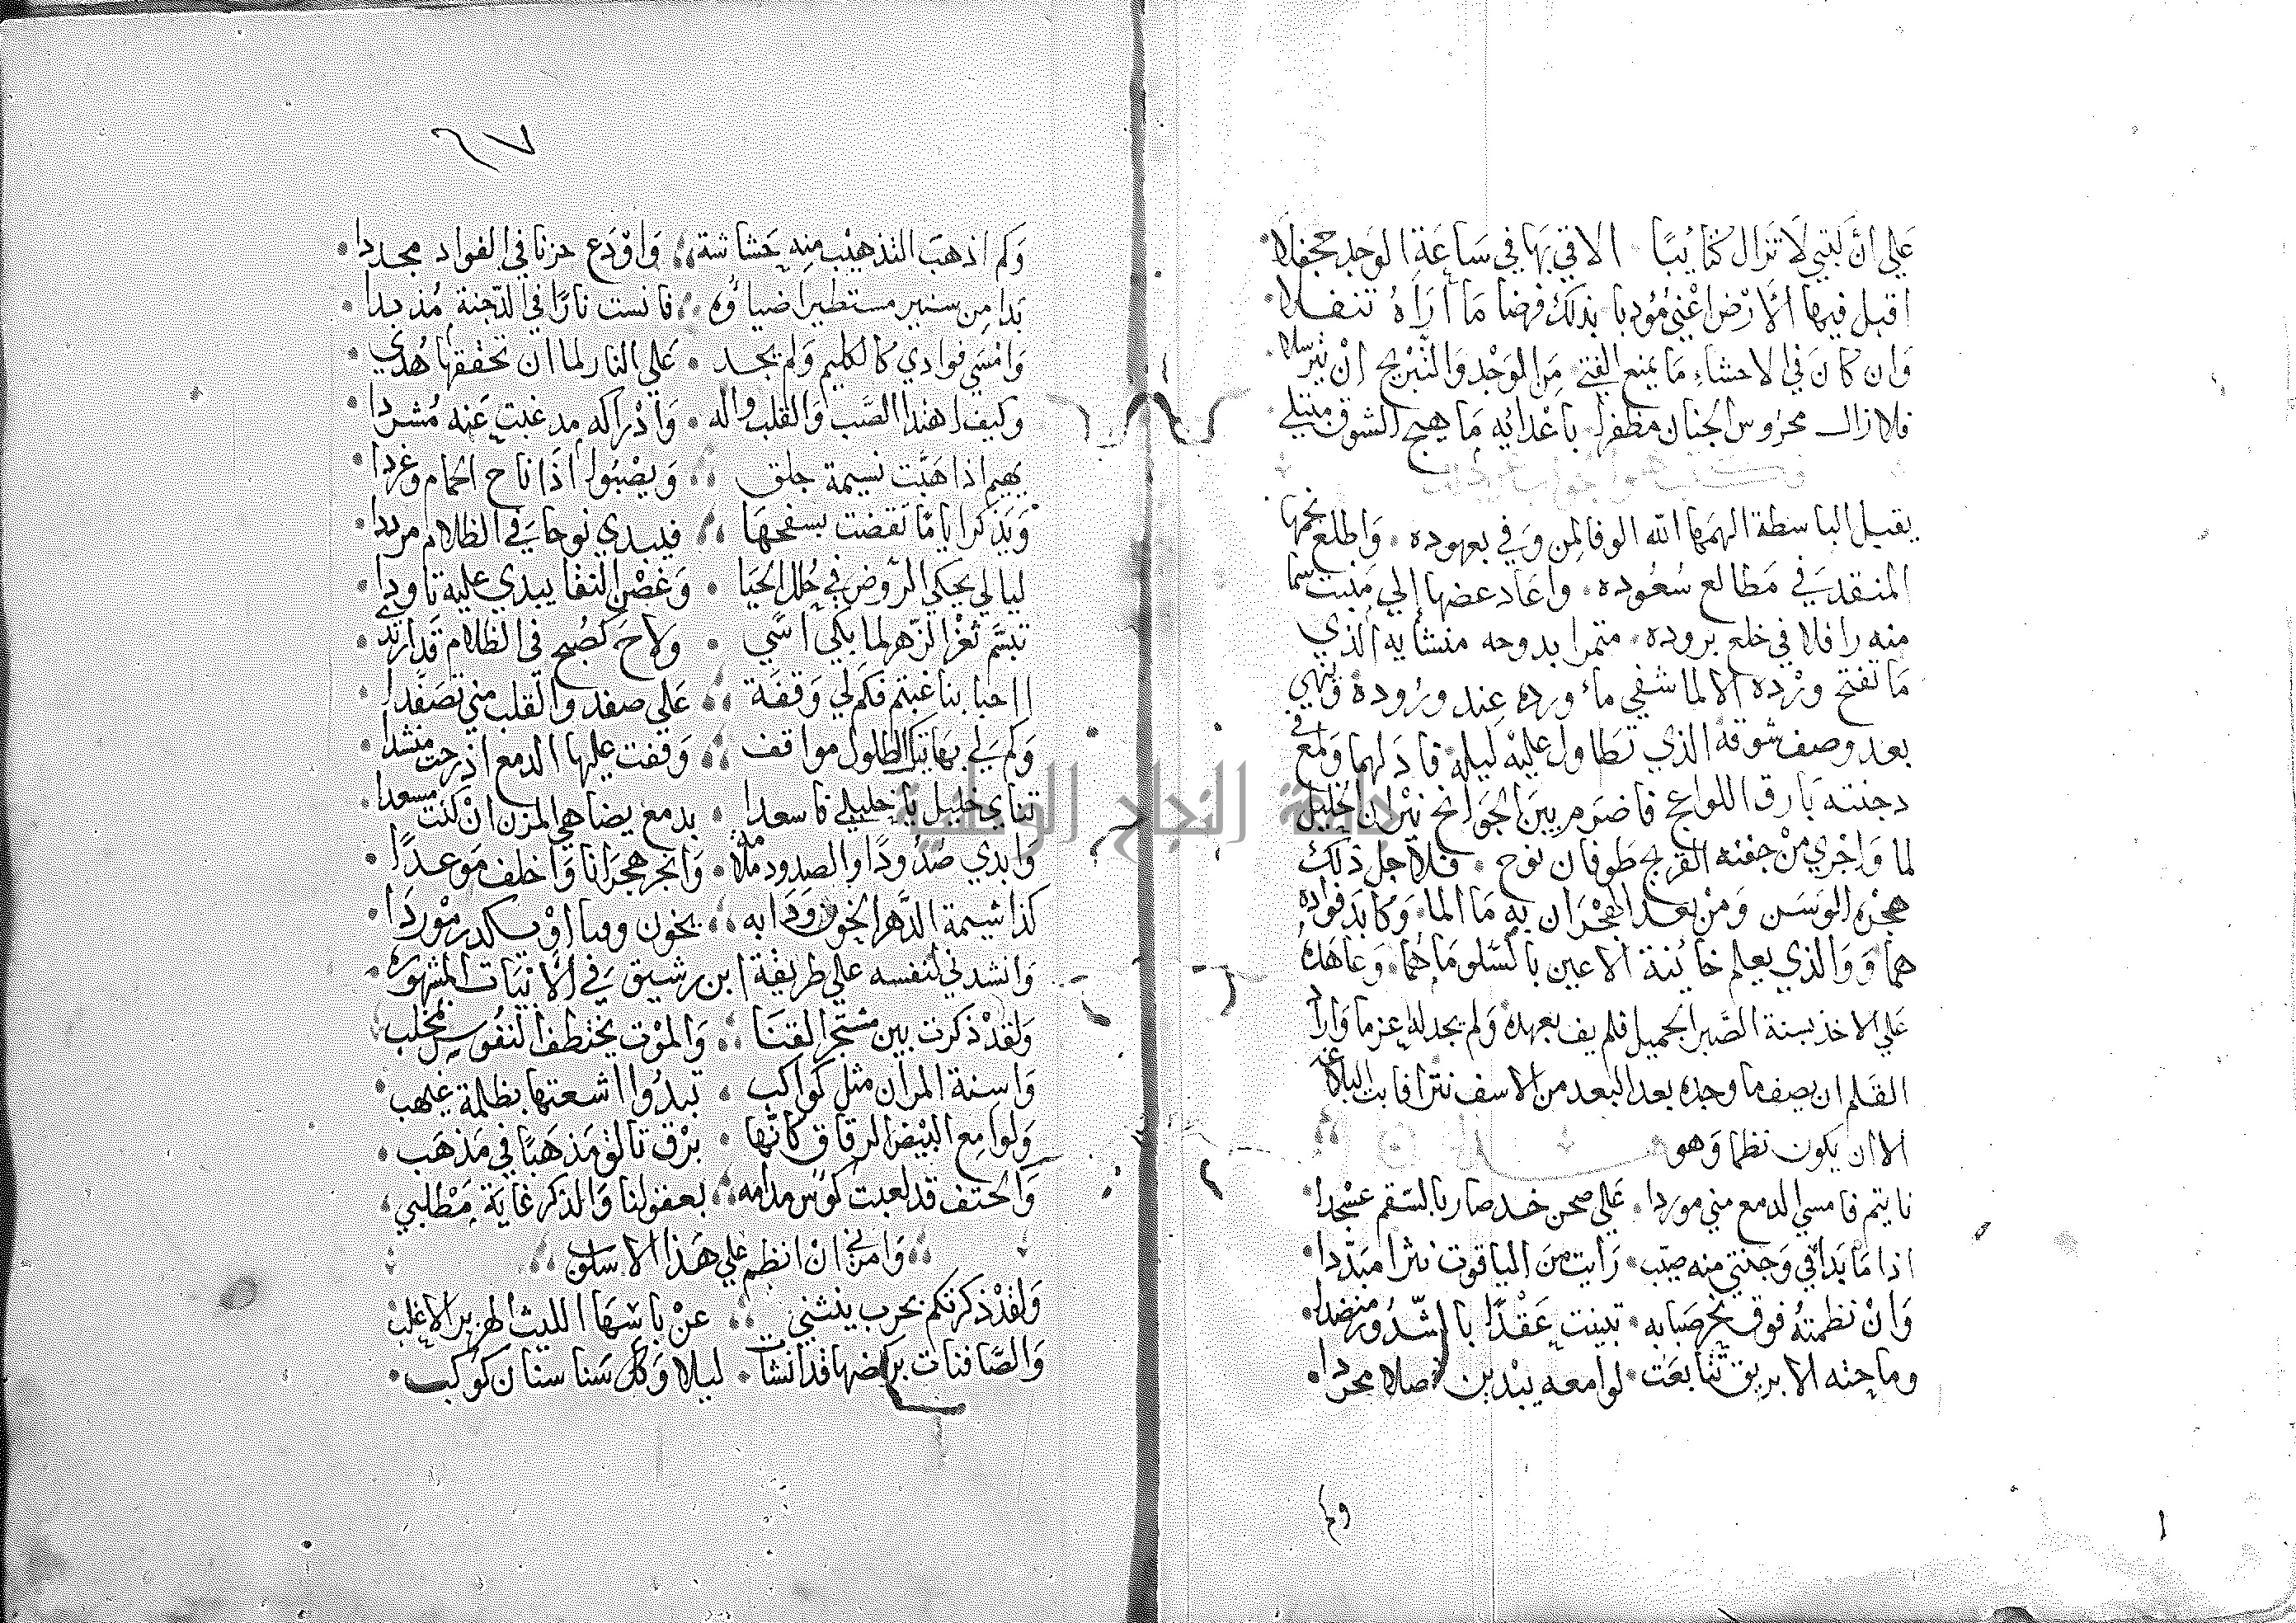 عَلي انَّ لبتي لا تَزال كتايُبًا · الاقي بهَا في سَاعَة الوَجد جحفلا
اقبل فيها الأرض اعْني مُؤدبا · بذلك فرضا مَا اراهُ تنفلا
وَان كانَ في الاحشاءِ مَا يمنع الفتي · مِن الوَجْد وَالتبْريح انْ يترسلا
فلا زال محروس الجنان مظفرا · باعْدائه مَا هيج الشوق مبتلي
يقبل الباسطة الهمَها الله الوفا لمن وَفي بعهوده · وَاطلع نجمها
المنقد في مَطالع سُعُوده · واعَاد غصنها الي مَنبت سما
منه رافلا في خلع بروده · متمرا بدوحه منشايه الذي
مَا تفتح ورْده الا لما شفي ماء ورده عِند ورُوده وَينهي
بعد وصف شوقه الذي تطاول عليْه ليله فادلهما وَلمع في
دجنته بَارق اللواعج فاضرم بين الجَوانح نيْران الخليل
لما وَاجْري منْ جفنه القريح طوفان نوح · فلاجل ذلك
هجْره الوَسَن وَمنْ بعد الهجْرَان به مَا الما · وَكابَد فواده
هما وَ وَالذي يعلم خاينة الاعين بالسَّلو مَا همَّا · وَعاهَدهُ
عَلي الاخذ بسنة الصَّبر الجميل فلم يف بعهده وَلم يجد له عزما وَاراد
القلم ان يصف ما وجده بعد البعد من الاسف نثرا فابت البلاغه
الا ان يكون نظما وَهو
نايتم فامسي الدمع مني موردا · عَلي صحن خد صار بالسّقم عسْجدا
اذا مَا بَدا في وَجنتي منه صيّب · رَايت منَ الياقوت نثرا مبَدّدا
وَانْ نظمتهُ فوق نحر صَبابه · تبينت عقْدًا بالشّدُور منضدا
وما جنه الا بريق تتابعَت · لوامعه يبْدين نصلا مجردا
وكم
٦٧
وَكم اذهبَ التذهيْب منهِ حَشاشة · وَاوْدَع حزنا في الفواد مجددا ·
بَدا مِن سنير مستطيرا ضياوُه · فانست نارًا في الدّجنة مُذ بدا ·
وَامْسَي فوادي كالكليم وَلم يجد · عَلي النار لما ان تحققها هُدي ·
وكيف اهتدا الصَّب وَالقلب واله · وَادْراكه مذ غبت عَنه مُشردا ·
يهيم اذا هَبَّت نسيمة جلق · وَيصْبُوا اذَا ناح الحمام وغردا ·
وَيَذكر ايامًا تقضت بسفحهَا · فيبدي نوحا في الظلام مرددا ·
ليالي يحكي الرّوض في حُلل الحَيا · وَغصْن النقا يبدي عليه تاودا ·
تبسَّم ثغْر الزّهر لما بكي اسَي · ولاحَ كصُبح في الظلام قد ارتدي ·
ااحبابنا غبتم فكم لي وَقفَة · عَلي صفد وَالقلب مني تصَفّدا ·
وَكم لي بهاتيك الطلول مواقف · وَقفت عليها الدمع اذ رحت منشدا ·
تناي خليل يا خليلي فاسعدا · بدمع يضاهي المزن ان كنت مسعدا ·
وَابدي صُدُودًا والصدود ملالة · وَانجز هجرَانا وَاخلف مَوعدًا ·
كذا شيمة الدَّهر الخوون وَدَابه · يخون وفيا اوْ يكدر موْردَا ·
وَانشدني لنفسه علي طريقة ابن رشيق في الأبيَات المشهوره ·
وَلقدْ ذكرت بين مشتجر القنَا · وَالموْت يختطف النفُوس بمخلب
وَاسِنة المران مثل كوَاكب · تبدُوا اشعتها بظلمة غيهب ·
وَلوامع البيْض الرقاق كانَّها · برْق تالق مَذهَبًا في مَذهَب ·
وَالحتف قد لعبت كوُس مدامه · بعقولنا وَالذكر غايَة مَطْلبي ·
وَامرَني انْ انظم علي هَذا الاسلوب
وَلقدْ ذكرتكم بحرب ينثني · عنْ باسهَا الليث الهزبر الاغلب
وَالصَّافنات بركضها قد انشات · ليلا وَكل سَنا سنان كوكب ·
جامعة النجاح الوطنية